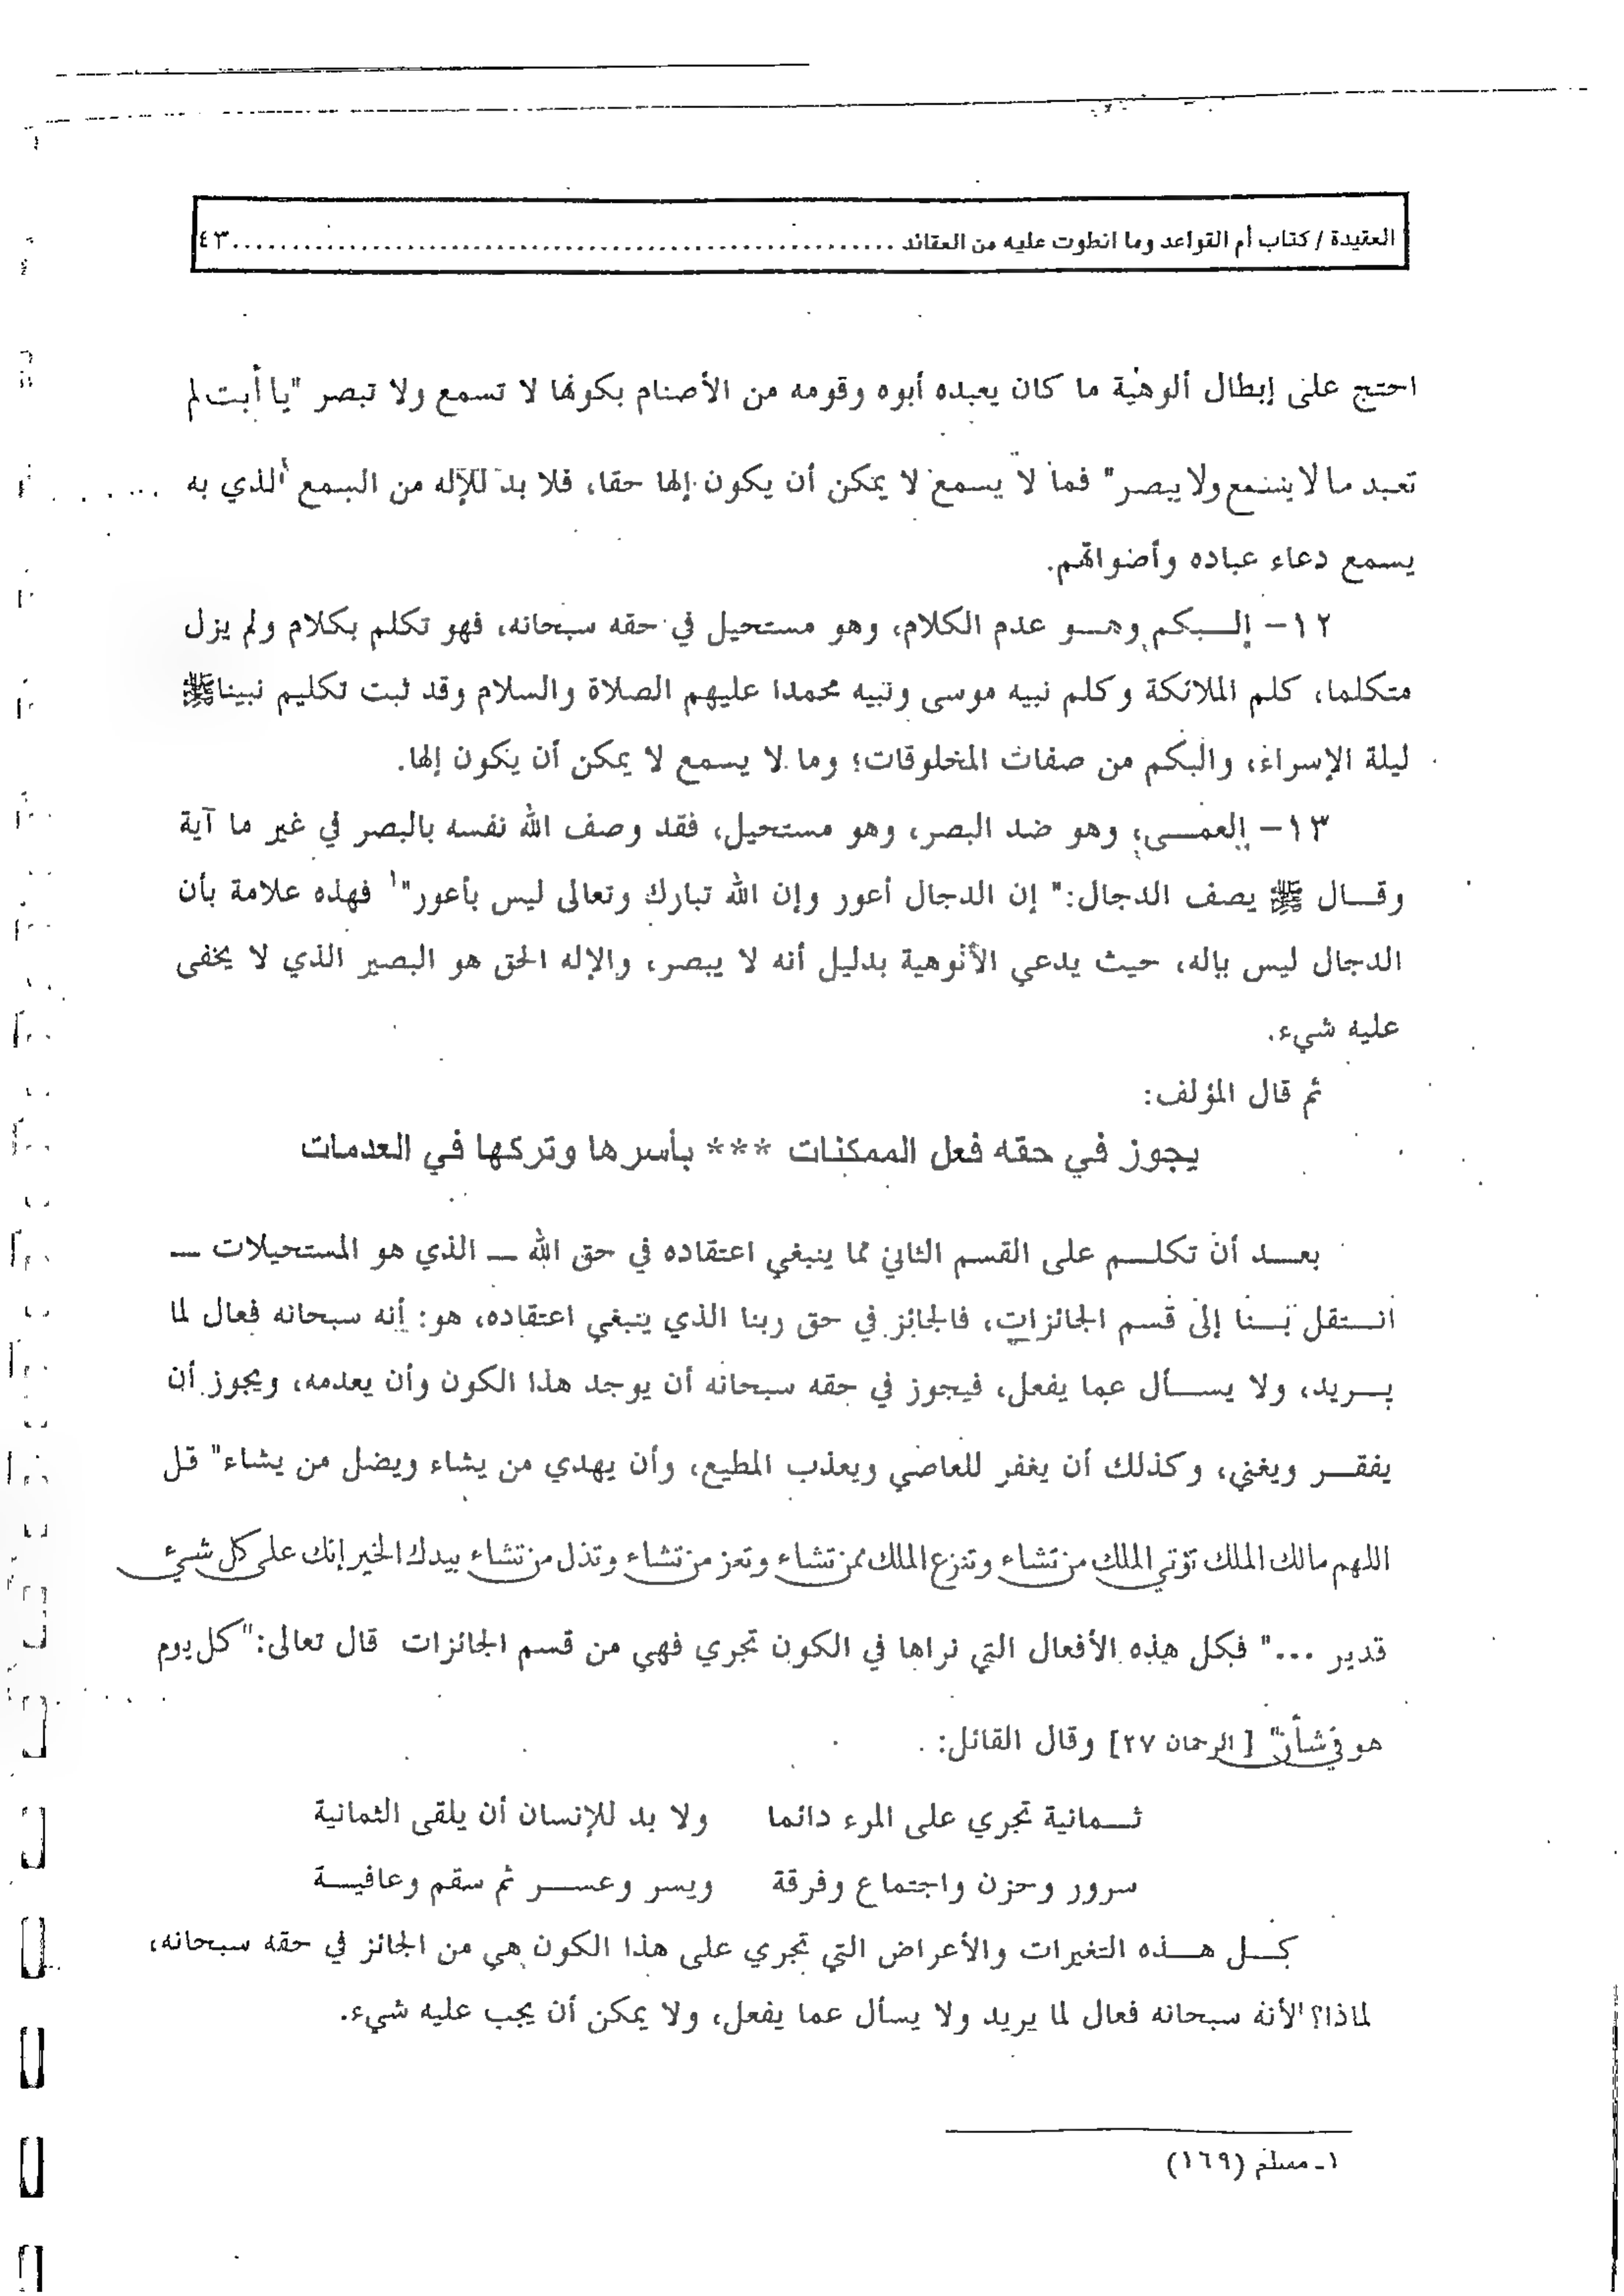 العقيدة / كتاب أم القواعد وما انطوت عليه من العقائد ........................................................ ٤٣
احتج على إبطال ألوهية ما كان يعبده أبوه وقومه من الأصنام بكونها لا تسمع ولا تبصر "يا أبت لم
تعبد ما لا يسمع ولا يبصر" فما لا يسمع لا يمكن أن يكون إلها حقا، فلا بد للإله من السمع الذي به
يسمع دعاء عباده وأصواتهم.
١٢- البكم وهو عدم الكلام، وهو مستحيل في حقه سبحانه، فهو تكلم بكلام ولم يزل
متكلما، كلم الملائكة وكلم نبيه موسى ونبيه محمدا عليهم الصلاة والسلام وقد ثبت تكليم نبينا ﷺ
ليلة الإسراء، والبكم من صفات المخلوقات؛ وما لا يسمع لا يمكن أن يكون إلها.
١٣- العمى، وهو ضد البصر، وهو مستحيل، فقد وصف الله نفسه بالبصر في غير ما آية
وقال ﷺ يصف الدجال:" إن الدجال أعور وإن الله تبارك وتعالى ليس بأعور"¹ فهذه علامة بأن
الدجال ليس بإله، حيث يدعي الألوهية بدليل أنه لا يبصر، والإله الحق هو البصير الذي لا يخفى
عليه شيء.
ثم قال المؤلف:
يجوز في حقه فعل الممكنات *** بأسرها وتركها في العدمات
بعد أن تكلم على القسم الثاني مما ينبغي اعتقاده في حق الله – الذي هو المستحيلات –
انتقل بنا إلى قسم الجائزات، فالجائز في حق ربنا الذي ينبغي اعتقاده، هو: أنه سبحانه فعال لما
يريد، ولا يسأل عما يفعل، فيجوز في حقه سبحانه أن يوجد هذا الكون وأن يعدمه، ويجوز أن
يفقر ويغني، وكذلك أن يغفر للعاصي ويعذب المطيع، وأن يهدي من يشاء ويضل من يشاء" قل
اللهم مالك الملك تؤتي الملك من تشاء وتنزع الملك ممن تشاء وتعز من تشاء وتذل من تشاء بيدك الخير إنك على كل شيء
قدير ..." فكل هذه الأفعال التي نراها في الكون تجري فهي من قسم الجائزات قال تعالى:" كل يوم
هو في شأن" [ الرحمان ٢٧] وقال القائل:
ثمانية تجري على المرء دائما ولا بد للإنسان أن يلقى الثمانية
سرور وحزن واجتماع وفرقة ويسر وعسر ثم سقم وعافية
كل هذه التغيرات والأعراض التي تجري على هذا الكون هي من الجائز في حقه سبحانه،
لماذا؟ لأنه سبحانه فعال لما يريد ولا يسأل عما يفعل، ولا يمكن أن يجب عليه شيء.
١- مسلم (١٦٩)